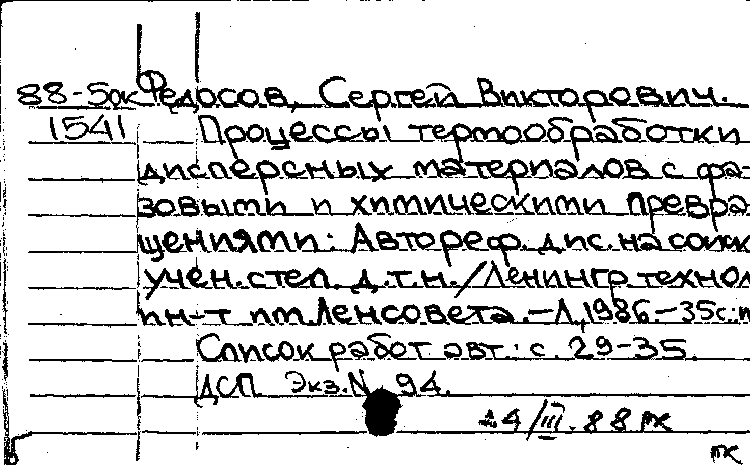 88-5ок Федосов, Сергей Викторович.
1541 Процессы термообработки
дисперсных материалов с фа-
зовыми и химическими превра-
щениями: Автореф. дис. на соиск
учен. степ. д.т.н./Ленингр. технол
ин-т им. Ленсовета. – Л, 1986. – 35с.: и
Список работ авт.: с. 29-35.
ДСП. Экз. N 94.
24/III. 88